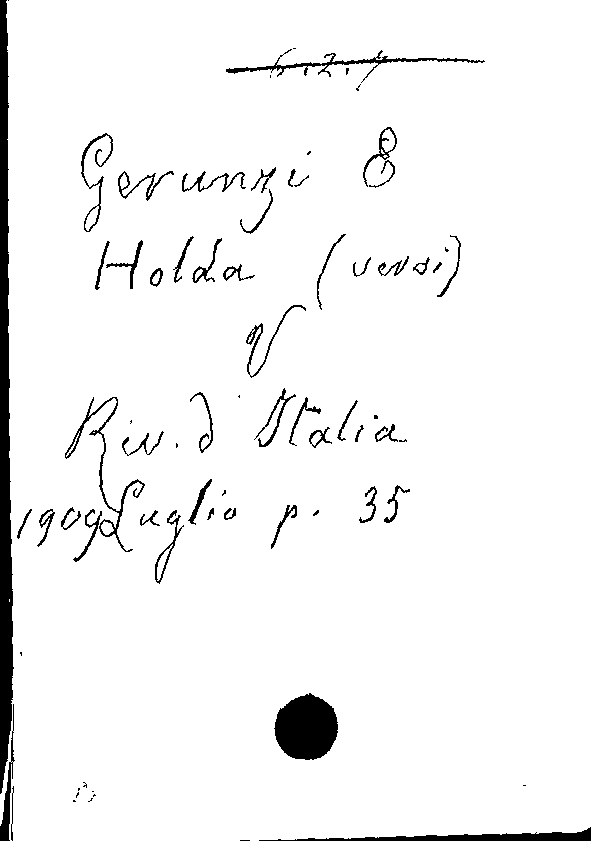 6.2.7
Gerunzi E
Holda (versi)
V
Riv. d'Italia
1909 Luglio p. 35